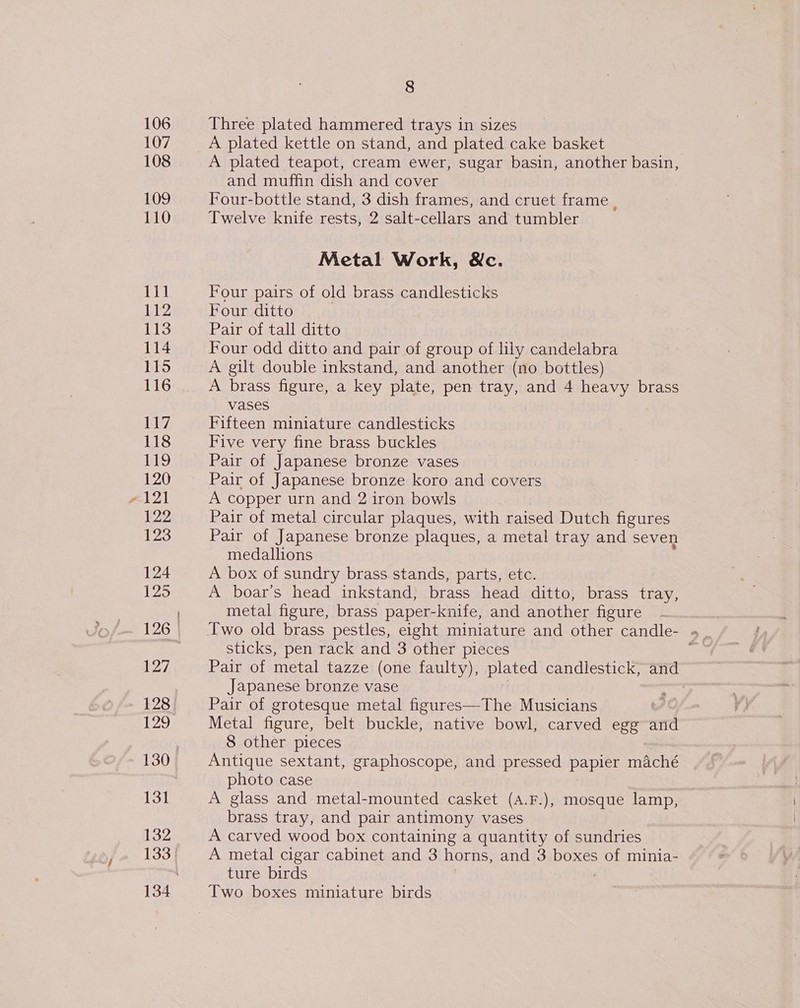 8
106 Three plated hammered trays in sizes
107 A plated kettle on stand, and plated cake basket
108 A plated teapot, cream ewer, sugar basin, another basin,
and muffin dish and cover
109 Four-bottle stand, 3 dish frames, and cruet frame
110 Twelve knife rests, 2 salt-cellars and tumbler
Metal Work, &c.
111 Four pairs of old brass candlesticks
112 Four ditto
113 Pair of tall ditto
114 Four odd ditto and pair of group of lily candelabra
115 A gilt double inkstand, and another (no bottles)
116 A brass figure, a key plate, pen tray, and 4 heavy brass
vases
117 Fifteen miniature candlesticks
118 Five very fine brass buckles
119 Pair of Japanese bronze vases
120 Pair of Japanese bronze koro and covers
121 A copper urn and 2 iron bowls
122 Pair of metal circular plaques, with raised Dutch figures
123 Pair of Japanese bronze plaques, a metal tray and seven
medallions
124 A box of sundry brass stands, parts, etc.
125 A boar's head inkstand, brass head ditto, brass tray,
metal figure, brass paper-knife, and another figure
126 Two old brass pestles, eight miniature and other candle-
sticks, pen rack and 3 other pieces
127 Pair of metal tazze (one faulty), plated candlestick, and
Japanese bronze vase
128 Pair of grotesque metal figures—The Musicians
129 Metal figure, belt buckle, native bowl, carved egg and
8 other pieces
130 Antique sextant, graphoscope, and pressed papier mâché
photo case
131 A glass and metal-mounted casket (A.F.), mosque lamp,
brass tray, and pair antimony vases
132 A carved wood box containing a quantity of sundries
133 A metal cigar cabinet and 3 horns, and 3 boxes of minia-
ture birds
134 Two boxes miniature birds